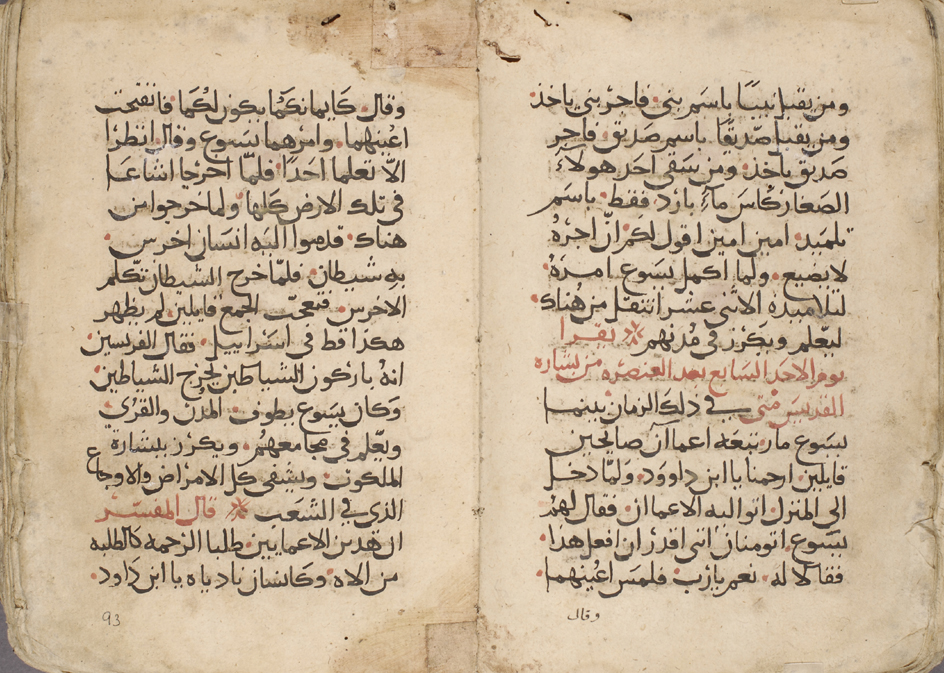 ومن يقبل نبيًا باسم نبي فاجر نبي ياخذ
ومن يقبل صدّيقًا باسم صديق فاجر
صديق ياخذ ومن يسقي احد هولاء
الصغار كاس ماء بارد فقط باسم
تلميذ امين امين اقول لكم انّ اجره
لا يضيع ولما اكمل يسوع امره
لتلاميذه الاثني عشر انتقل من هناك
ليعلم ويكرز في مدنهم يقرا
يوم الاحد السابع بعد العنصره من بشاره
القديس متي في ذلك الزمان بينما
يسوع مار تبعه اعمان صايحين
قايلين ارحمنا يا ابن داوود ولمّا دخل
الي المنزل اتوا اليه الاعمان فقال لهم
يسوع اتومنان انني اقدر ان افعل هدا
فقالا له نعم يارب فلمس اعينهما
وقال
وقال كايمانكما يكون لكما فانفتحت
اعينهما وامرهما يسوع وقال انظرا
الّا تعلما احدًا فلمّا اخرجا اشاعا
في تلك الارض كلها ولما خرجوا من
هناك قدموا اليه انسان اخرس
به شيطان فلمّا خرج الشيطان تكلم
الاخرس فتعجب الجمع قايلين لم يظهر
هكذا قط في اسراييل فقال الفريسين
انه باركون الشياطين يخرج الشياطين
وكان يسوع يطوف المدن والقري
ويعلم في مجامعهم ويكرز ببشارة
الملكوت ويشفي كل الامراض والاوجاع
الذي في الشعب قال المفسّر
ان هدين الاعمايين طلبا الرحمه كالطلبه
من الاه وكانسان نادياه يا ابن داود
93